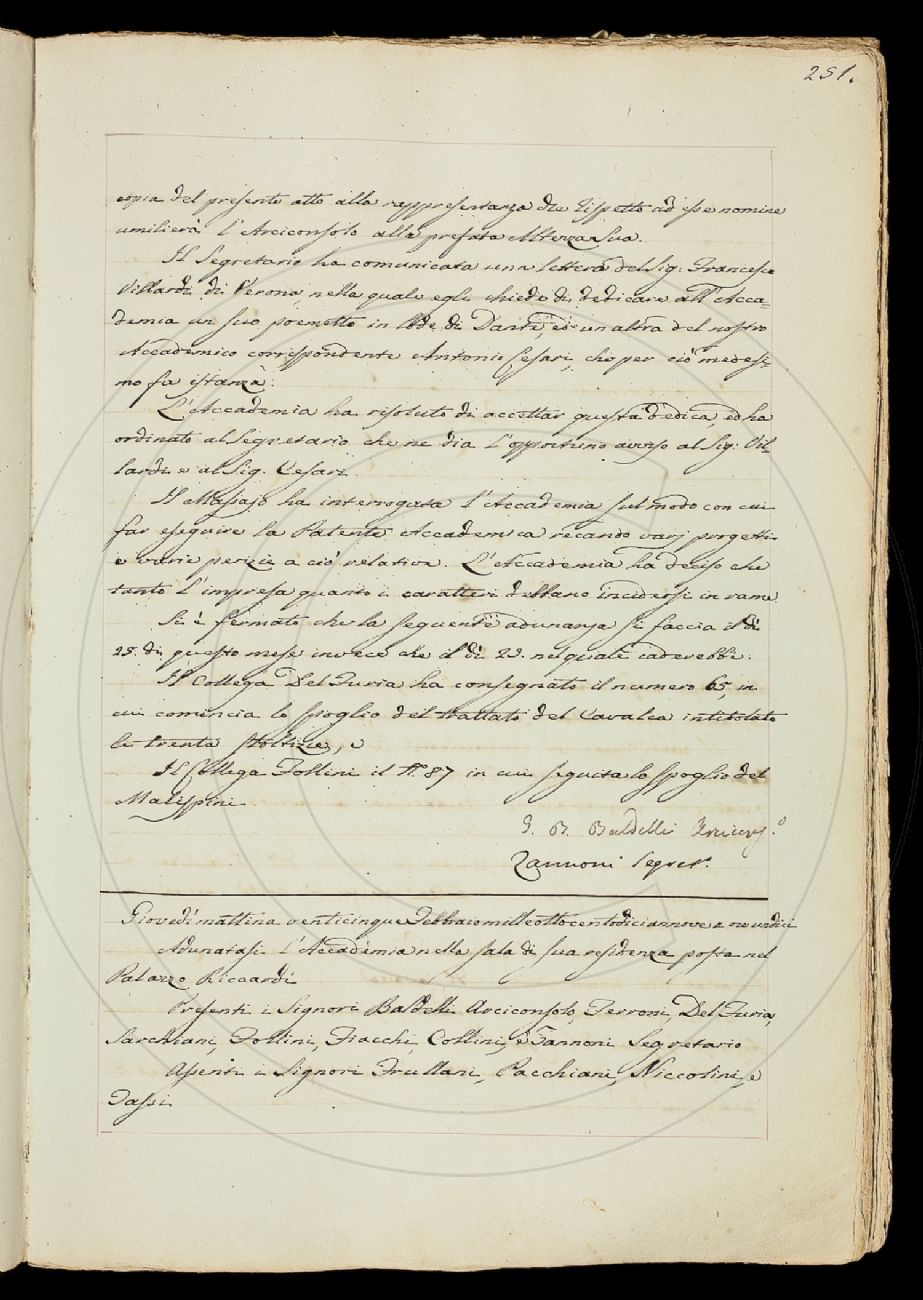 251.
copia del presente atto alla rappresentanza che rispetto ad esse nomine
umilierà l'Arciconsolo alla prefata Altezza Sua.
Il Segretario ha comunicata una lettera del Sig: Francesco
Villardi di Verona, nella quale egli chiede di dedicare all'Acca-
demia un suo poemetto in lode di Dante, ed un altra del nostro
Accademico corrispondente Antonio Cesari, che per ciò medesi-
mo fa istanza.
L'Accademia ha risoluto di accettar questa dedica, ed ha
ordinato al Segretario che ne dia l'opportuno avviso al Sig: Vil-
lardi e al Sig. Cesari
Il Massajo ha interrogata l'Accademia sul modo con cui
far eseguire la Patente Accademica recando varj progetti
e varie perizie a ciò relative. L'Accademia ha deciso che
tanto l'impresa quanto i caratteri debbano incidersi in rame
Si è fermato che la seguente adunanza si faccia il dì
25. di questo mese invece che il dì 23. nel quale caderebbe.
Il Collega Del Furia ha consegnato il numero 65, in
cui comincia lo spoglio del trattato del Cavalca intitolato
le trenta stoltizie, e
Il Collega Follini il N.° 87 in cui seguita lo spoglio del
Malispini
G. B. Baldelli Arcicons.°
Zannoni Segret.
Giovedì mattina venticinque Febbraio milleottocentodiciannove a ore undici
Adunatasi l'Accademia nella sala di sua residenza posta nel
Palazzo Riccardi
Presenti i Signori Baldelli Arciconsolo, Ferroni, Del Furia,
Sarchiani, Follini, Fiacchi, Collini, e Zannoni Segretario
Assenti i Signori Frullani, Pacchiani, Niccolini, e
Tassi